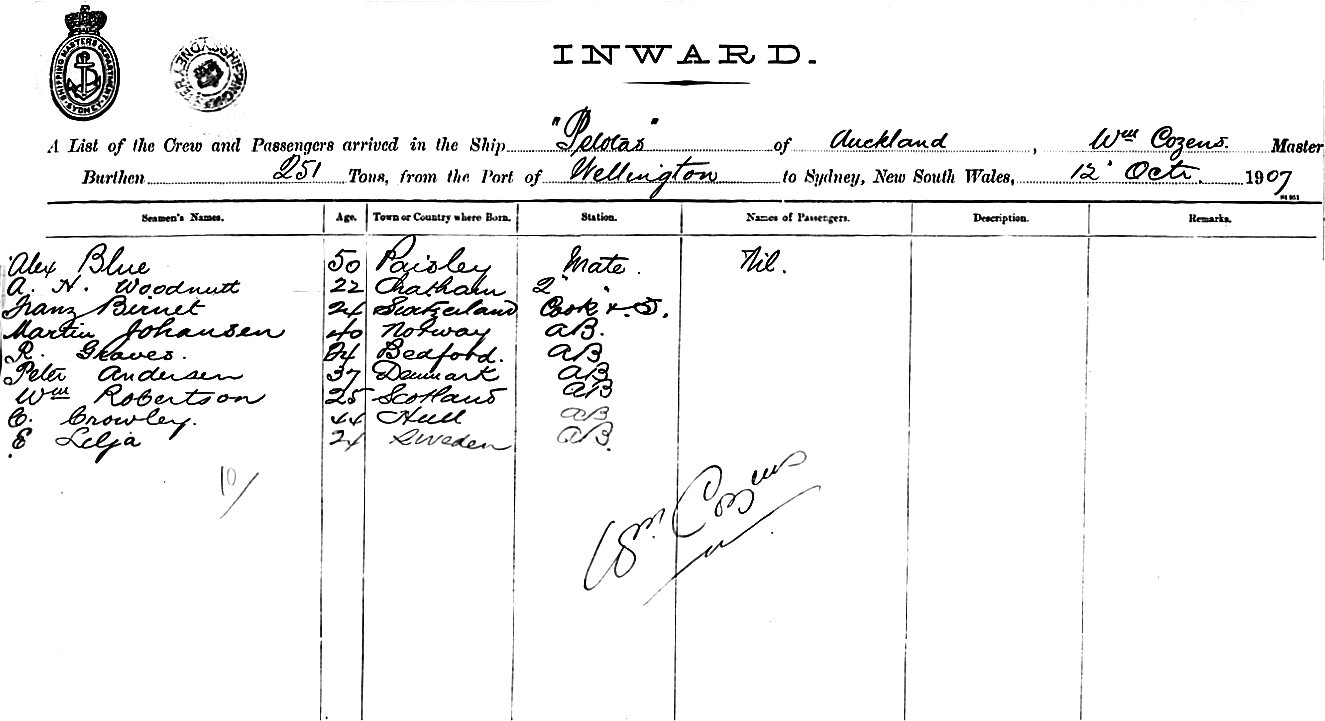 SHIPPING MASTERS DEPARTMENT SYDNEY
INWARD.
A List of the Crew and Passengers arrived in the Ship "Pelotas" of Auckland, Wm Cozens. Master
Burthen 251 Tons, from the Port of Wellington to Sydney, New South Wales, 12' Octr. 1907
Seamen's Names. Age. Town or Country where Born. Station. Names of Passengers. Description. Remarks.
Alex Blue 50 Paisley Mate. Nil.
A. H. Woodnutt 22 Chatham 2 "
Franz Birnet 24 Switzerland Cook & S.
Martin Johansen 40 Norway AB.
R. Graves. 24 Bedford. AB
Peter Andersen 37 Denmark AB
Wm Robertson 25 Scotland AB
C. Crowley. 44 Hull AB
E Lelja 24 Sweden AB.
10/
Wm Cozens